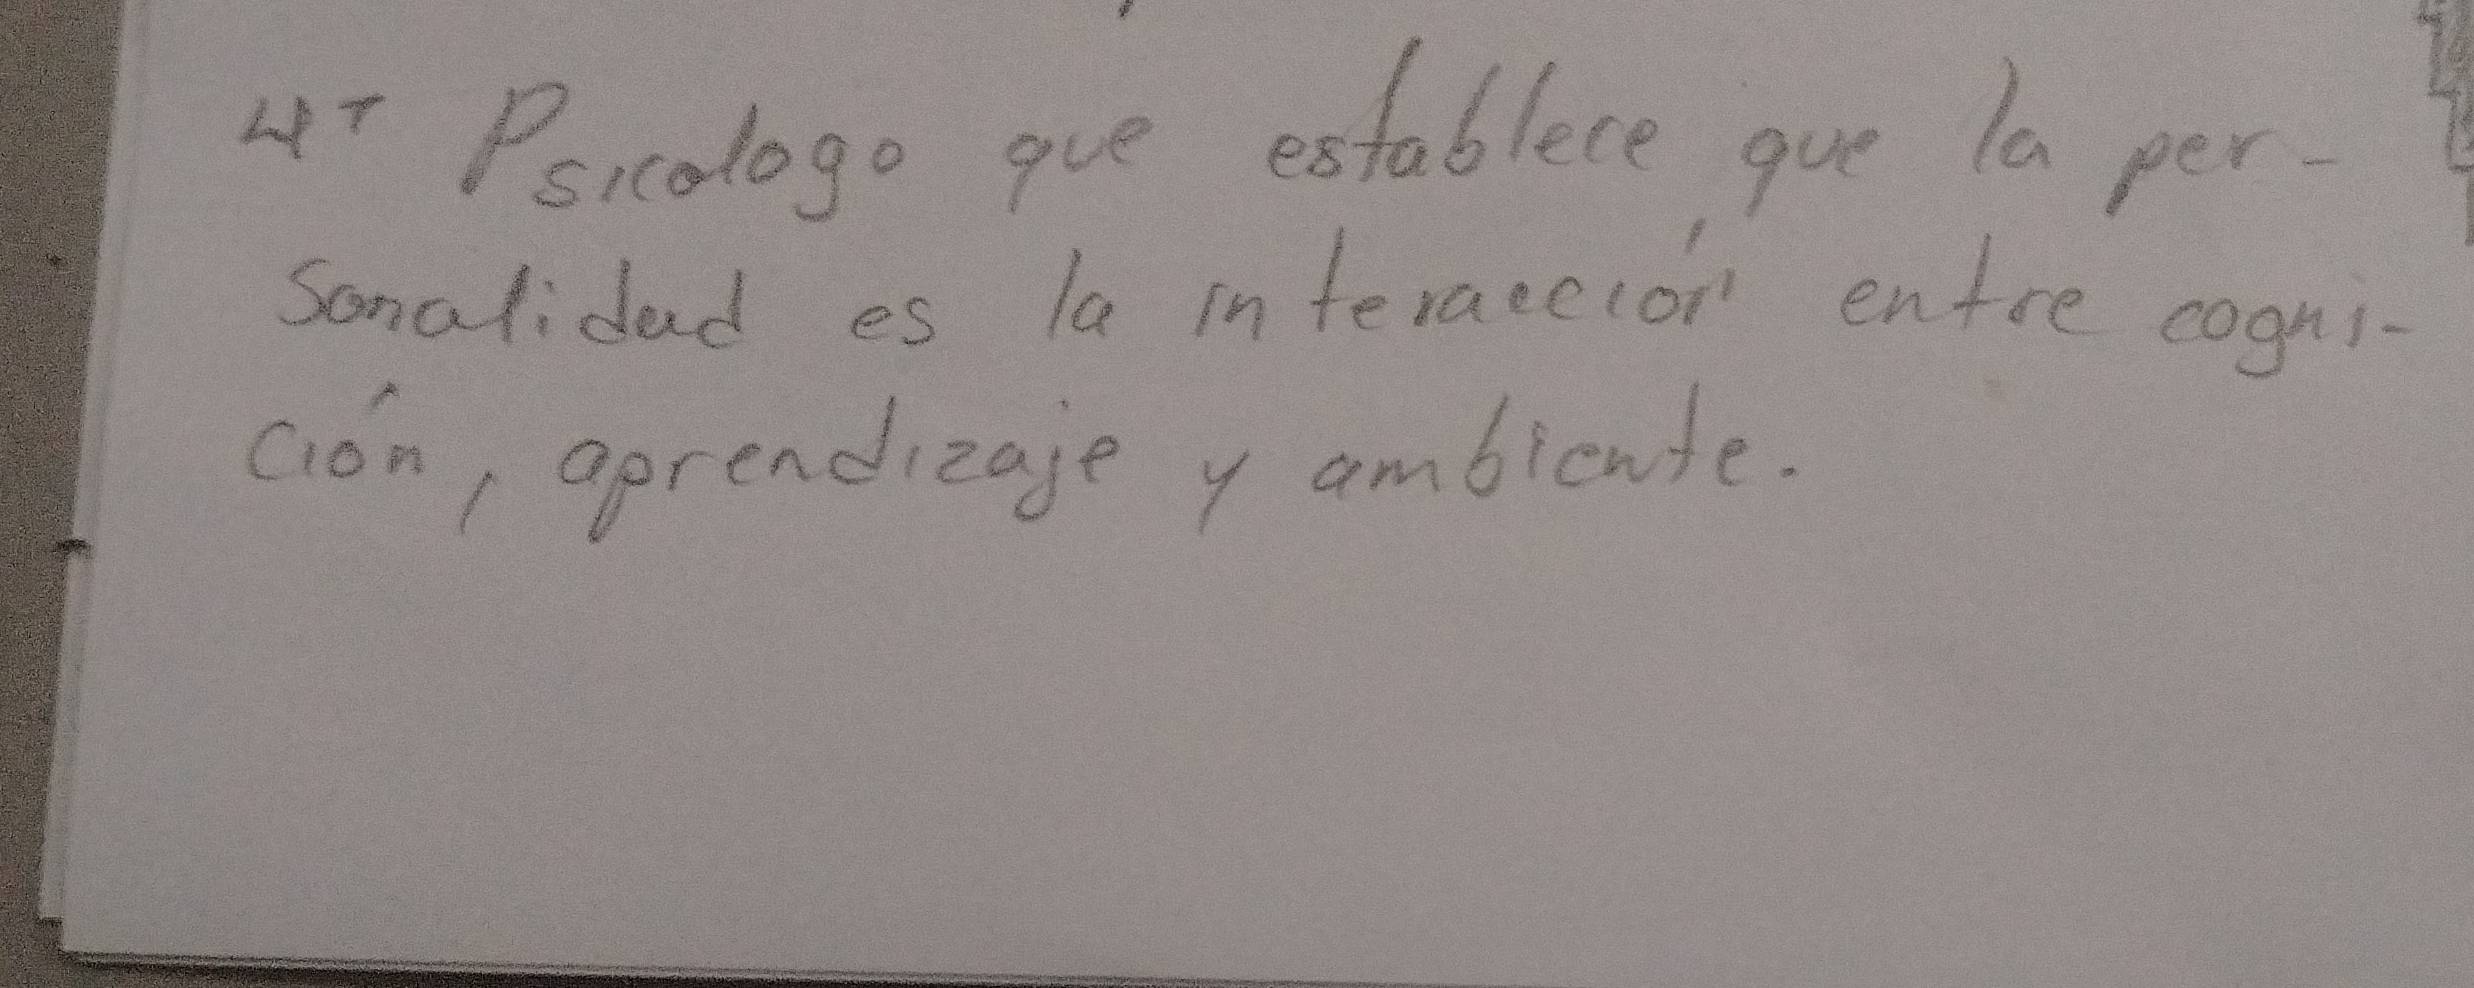 4- Psicologo que establece que la per-
sonalidad es la interacción entre cogni-
ción, aprendizaje y ambiente.